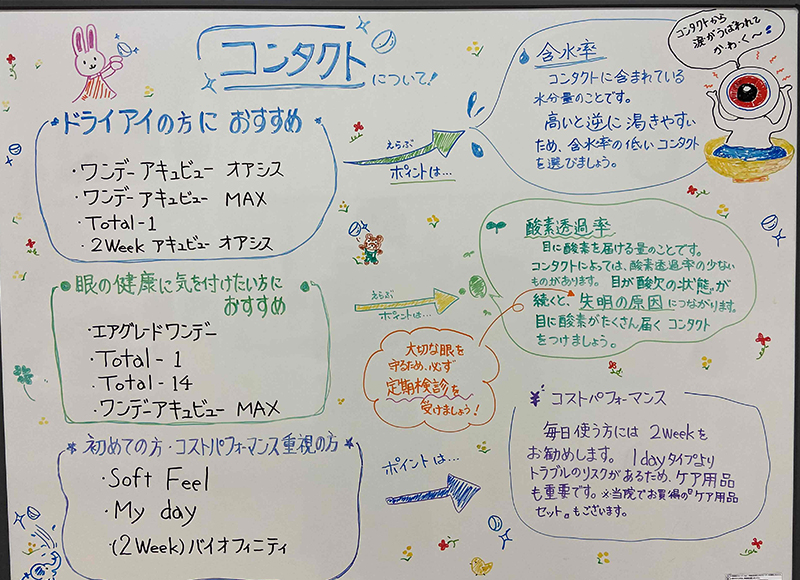 コンタクト
について!
コンタクトから
涙がうばわれて
かわ・く〜
ドライアイの方に おすすめ
・ワンデー アキュビュー オアシス
・ワンデー アキュビュー MAX
・Total-1
・2Week アキュビュー オアシス
えらぶ
ポイントは…
含水率
コンタクトに含まれている
水分量のことです。
高いと逆に渇きやすい
ため、含水率の低いコンタクト
を選びましょう。
眼の健康に気を付けたい方に
おすすめ
・エアグレードワンデー
・Total-1
・Total-14
・ワンデーアキュビュー MAX
えらぶ
ポイントは…
酸素透過率
目に酸素を届ける量のことです。
コンタクトによっては、酸素透過率の少ない
ものがあります。目が酸欠の状態が
続くと、失明の原因につながります。
目に酸素がたくさん届くコンタクト
をつけましょう。
大切な眼を
守るため、必ず
定期検診を
受けましょう!
初めての方・コストパフォーマンス重視の方
・Soft Feel
・My day
・(2Week)バイオフィニティ
ポイントは…
¥ コストパフォーマンス
毎日使う方には 2weekを
お勧めします。1dayタイプより
トラブルのリスクがあるため、ケア用品
も重要です。※当院でお買得のケア用品
セット。もございます。